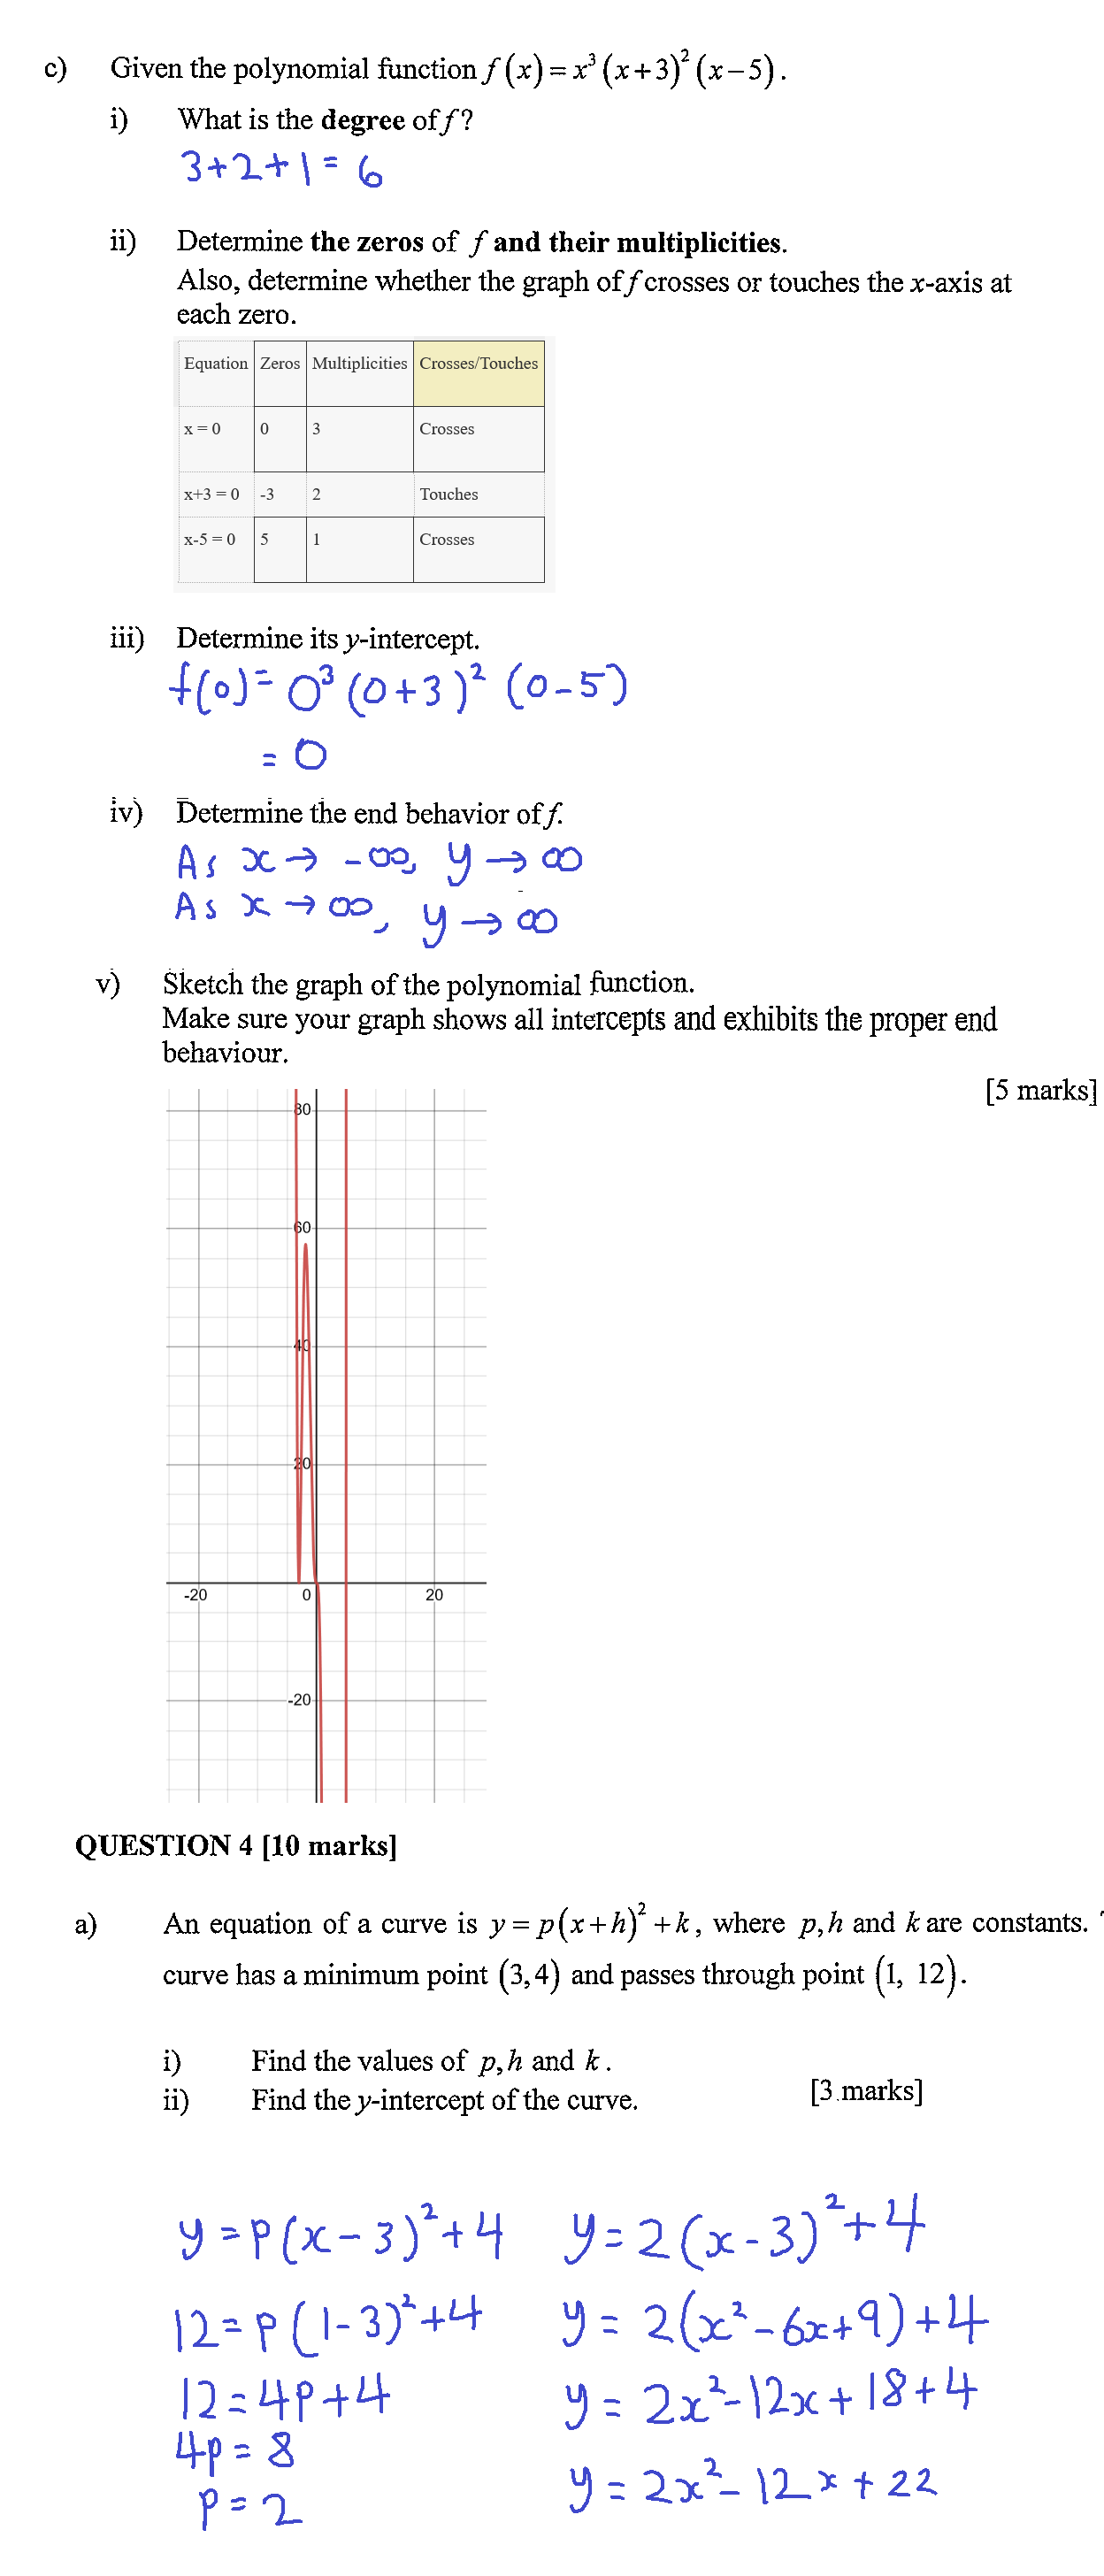 c) Given the polynomial function f(x)=x³(x+3)²(x−5).
i) What is the degree of f?
3+2+1= 6
ii) Determine the zeros of f and their multiplicities.
Also, determine whether the graph of f crosses or touches the x-axis at
each zero.
Equation Zeros Multiplicities Crosses/Touches
x = 0 0 3 Crosses
x+3 = 0 -3 2 Touches
x-5 = 0 5 1 Crosses
iii) Determine its y-intercept.
f(0)= 0³(0+3)² (0-5)
= 0
iv) Determine the end behavior of f.
As x → -∞, y → ∞
As x → ∞, y → ∞
v) Sketch the graph of the polynomial function.
Make sure your graph shows all intercepts and exhibits the proper end
behaviour.
[5 marks]
80
60
40
20
-20 0 20
-20
QUESTION 4 [10 marks]
a) An equation of a curve is y=p(x+h)²+k, where p,h and k are constants.
curve has a minimum point (3,4) and passes through point (1, 12).
i) Find the values of p,h and k.
ii) Find the y-intercept of the curve.
[3 marks]
y=p(x-3)²+4 y=2(x-3)²+4
12=p(1-3)²+4 y=2(x²-6x+9)+4
12=4p+4 y=2x²-12x+18+4
4p=8
p=2 y=2x²-12x+22